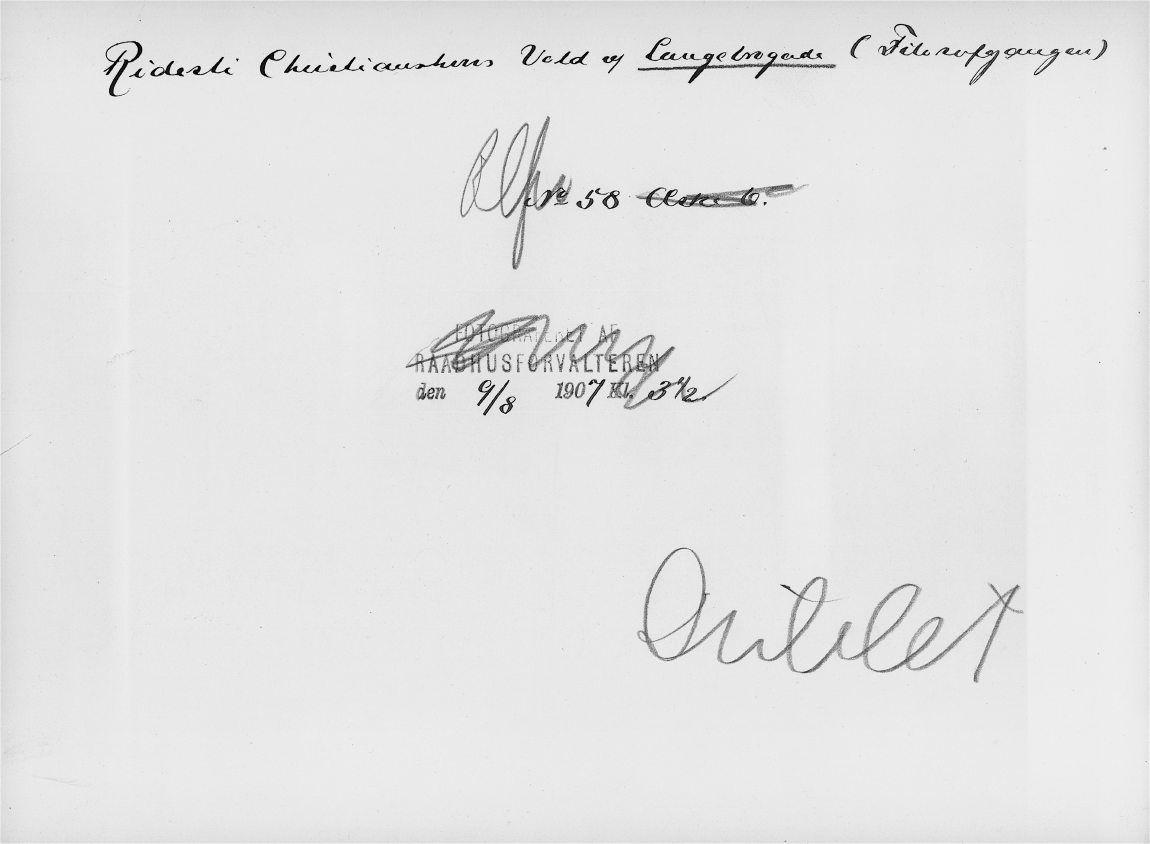 Ridesti Christianshavns Vold og Langebrogade (Filosofgangen)
No 58
FOTOGRAFERET AF
RAADHUSFORVALTEREN
den 9/8 1907 Kl. 3 1/2
Dublet